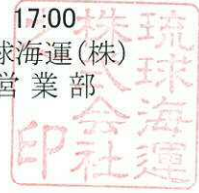 17:00
球海運(株)
営業部
琉球海運
株式会社
印